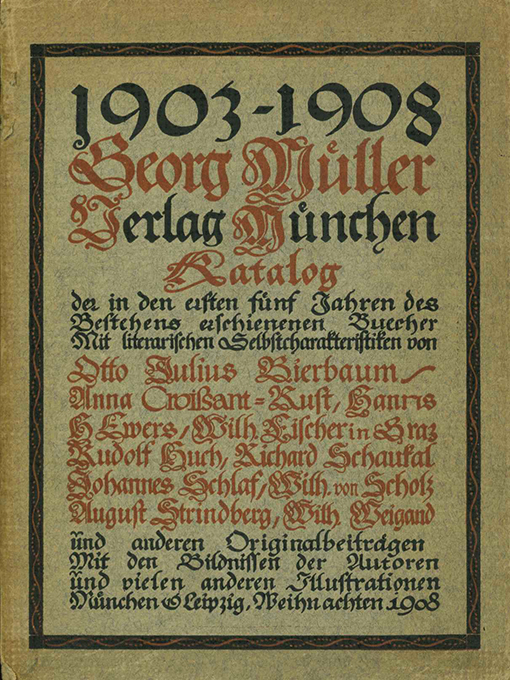 1903-1908
Georg Müller
Verlag München
Katalog
der in den ersten fünf Jahren des
Bestehens erschienenen Buecher
Mit literarischen Selbstcharakteristiken von
Otto Julius Bierbaum/
Anna Croissant=Rust, Hanns
H Ewers/Wilh. Fischer in Graz
Rudolf Huch, Richard Schaukal
Johannes Schlaf/Wilh. von Scholz
August Strindberg, Wilh. Weigand
und anderen Originalbeiträgen
Mit den Bildnissen der Autoren
und vielen anderen Illustrationen
München & Leipzig, Weihnachten 1908